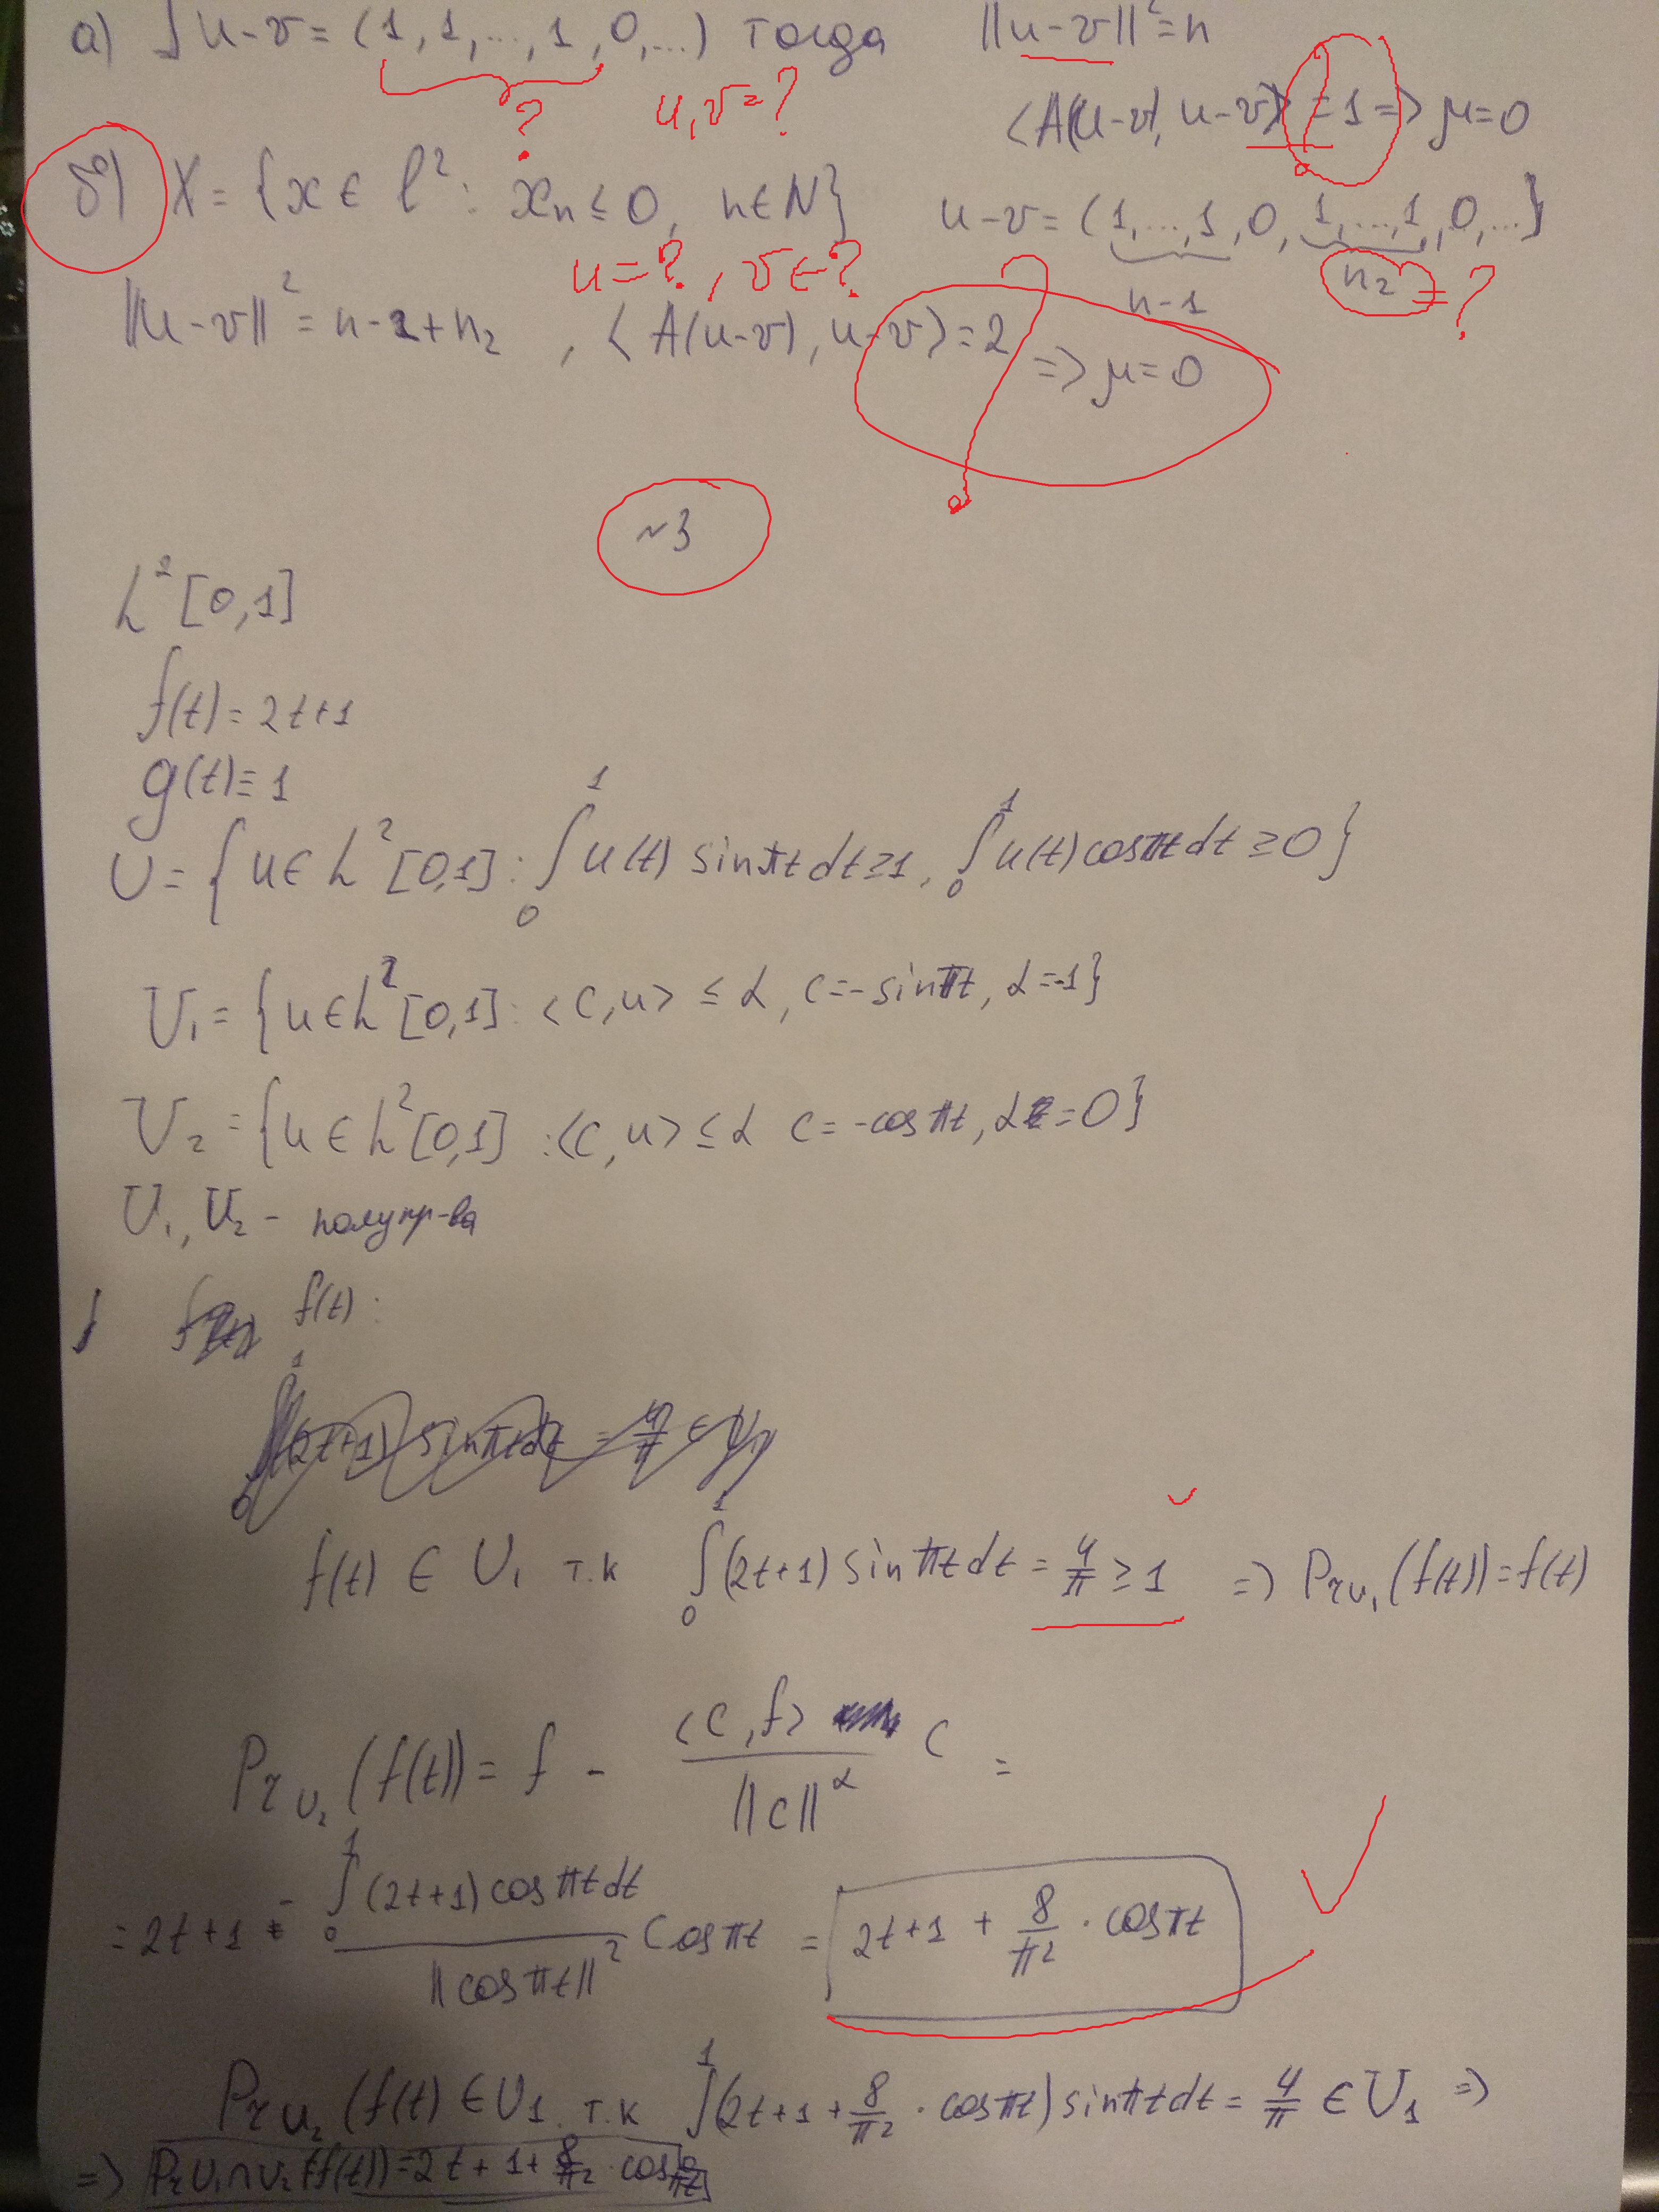 a) ] u-v = (1, 1, ..., 1, 0, ...) тогда ||u-v||² = n
? u, v = ?
<A(u-v), u-v> = 1 => μ=0
б) X = {x ∈ l² : xₙ ≤ 0, n∈N} u-v = (1, ..., 1, 0, 1, ..., 1, 0, ...}
u = ?, v = ? n-1 n₂ = ?
||u-v||² = n-1+n₂, <A(u-v), u-v> = 2 => μ=0
~3
L²[0,1]
f(t) = 2t+1
g(t) ≡ 1
U = {u ∈ L²[0,1] : ∫₀¹ u(t) sinπt dt ≥ 1, ∫₀¹ u(t) cosπt dt ≥ 0}
U₁ = {u ∈ L²[0,1] : <c, u> ≤ α, c = -sinπt, α = -1}
U₂ = {u ∈ L²[0,1] : <c, u> ≤ α c = -cosπt, α = 0}
U₁, U₂ - полупр-ва
] f(t) :
∫₀¹ (2t+1) sinπt dt = 4/π ∈ U₁
f(t) ∈ U₁ т.к ∫₀¹ (2t+1) sinπt dt = 4/π ≥ 1 => Pr_U₁ (f(t)) = f(t)
Pr_U₂ (f(t)) = f - <c, f> / ||c||² c =
= 2t+1 - ∫₀¹ (2t+1) cosπt dt / ||cosπt||² cosπt = 2t+1 + 8/π² · cosπt
Pr_U₂ (f(t) ∈ U₁ т.к ∫₀¹ (2t+1 + 8/π² · cosπt) sinπt dt = 4/π ∈ U₁ =>
=> Pr_U₁∩U₂ (f(t)) = 2t+1+ 8/π² · cosπt